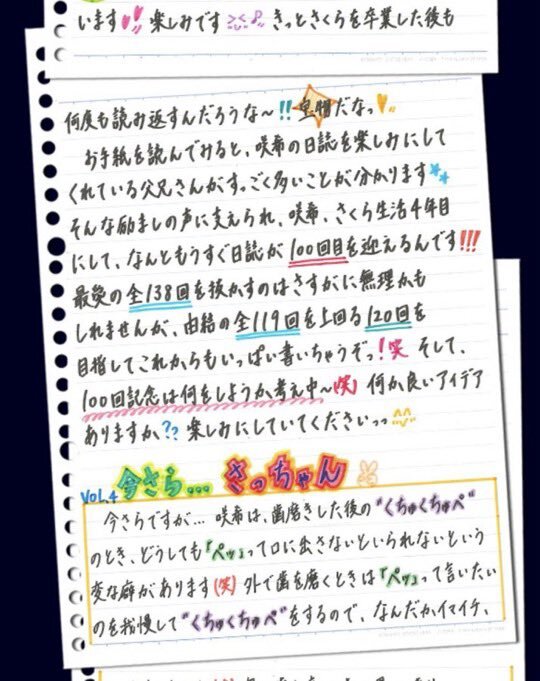 います!! 楽しみです>_<♪ きっとさくらを卒業した後も
何度も読み返すんだろうな〜!! 皇帽だなっ
お手紙を読んでみると、咲希の日誌を楽しみにして
くれている父兄さんがすっごく多いことが分かります
そんな励ましの声に支えられ、咲希、さくら生活4年目
にして、なんともうすぐ日誌が100回目を迎えるんです!!!
最愛の全138回を抜かすのはさすがに無理かも
しれませんが、由結の全119回を上回る120回を
目指してこれからもいっぱい書いちゃうぞっ!笑 そして、
100回記念は何をしようか考え中〜(笑) 何か良いアイデア
ありますか?? 楽しみにしていてくださいっっ^^
VOL.4 今さら... さっちゃん
今さらですが... 咲希は、歯磨きした後の"くちゅくちゅペ"
のとき、どうしても「ペッ」って口に出さないといられないという
変な癖があります(笑) 外で歯を磨くときは「ペッ」って言いたい
のを我慢して"くちゅくちゅペ"をするので、なんだかイマイチ、